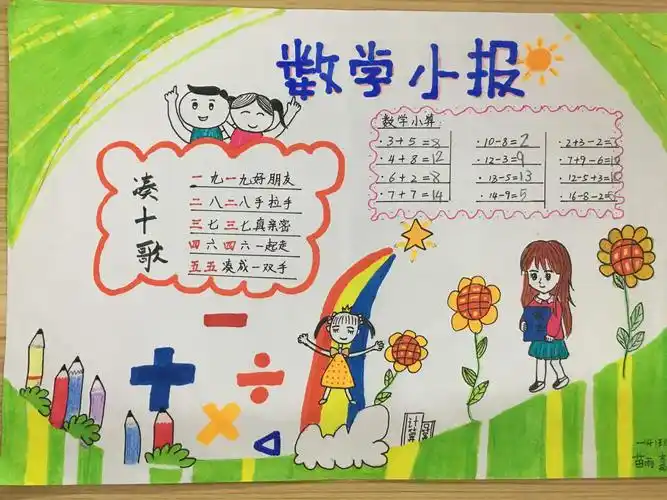 数学小报
凑十歌
一九一九好朋友
二八二八手拉手
三七三七真亲密
四六四六一起走
五五凑成一双手
数学小算
·3+5=8 ·10-8=2 ·2+3-2=3
·4+8=12 ·12-3=9 ·7+9-6=10
·6+2=8 ·13-5=13 ·12-5+3=10
·7+7=14 ·14-9=5 ·16-8-2=6
计算